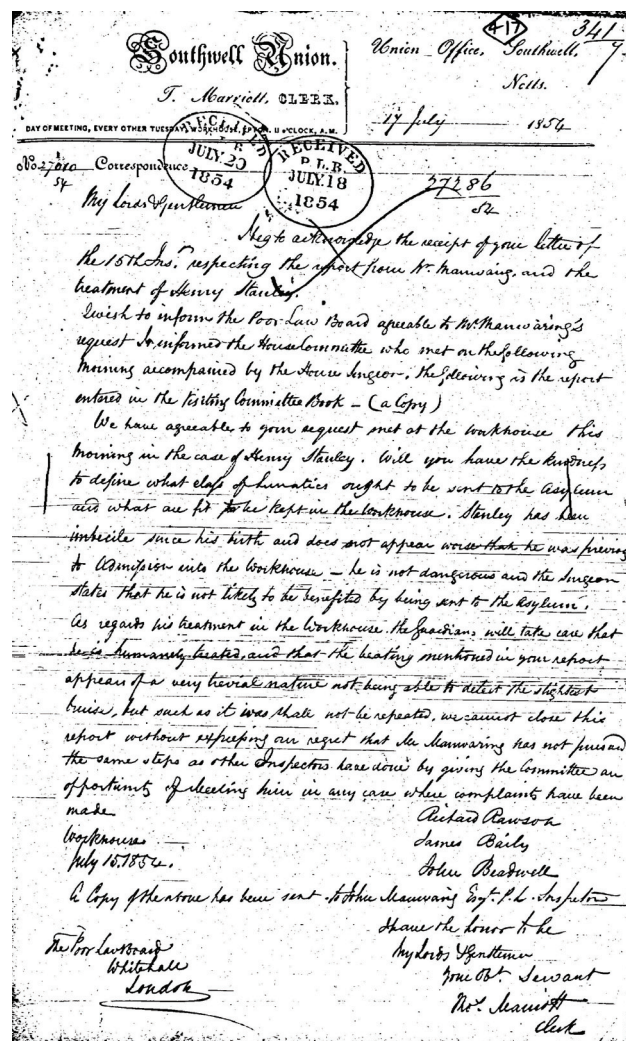 417
341
9
Southwell Union.
Union Office, Southwell,
Notts.
T. Marriott, CLERK.
17 July 1854
DAY OF MEETING, EVERY OTHER TUESDAY, WORKHOUSE, O'CLOCK, A.M.
RECEIVED
JULY.20
1854
RECEIVED
P.L.B.
JULY.18
1854
No. Correspondence
54
27286
54
My Lords & Gentlemen
I beg to acknowledge the receipt of your letter of
the 15th Inst. respecting the report from Mr. Manwaring and the
treatment of Henry Stanley.
I wish to inform the Poor Law Board agreeable to Mr. Manwaring's
request I informed the House Committee who met on the following
morning accompanied by the House Surgeon, the following is the report
entered in the Visiting Committee Book – (a Copy)
We have agreeable to your request met at the workhouse this
morning in the case of Henry Stanley. Will you have the kindness
to define what class of lunatics ought to be sent to the asylum
and what are fit to be kept in the workhouse. Stanley has been
imbicile since his birth and does not appear worse than he was previous
to admission into the workhouse – he is not dangerous and the Surgeon
states that he is not likely to be benefited by being sent to the asylum.
As regards his treatment in the workhouse the Guardians will take care that
he is humanely treated, and that the beating mentioned in your report
appears of a very trevial nature not being able to detect the slightest
bruise, but such as it was shall not be repeated, we cannot close this
report without expressing our regret that Mr Manwaring has not pursued
the same steps as other Inspectors have done by giving the Committee an
opportunity of meeting him in any case where complaints have been
made
Richard Rawson
Workhouse
James Baily
July 15. 1854.
John Beadwell
A Copy of the above has been sent to John Manwaring Esqr. P.L. Inspector
I have the honor to be
My Lords & Gentlemen
Your Obt. Servant
Thos. Marriott
Clerk
The Poor Law Board
Whitehall
London